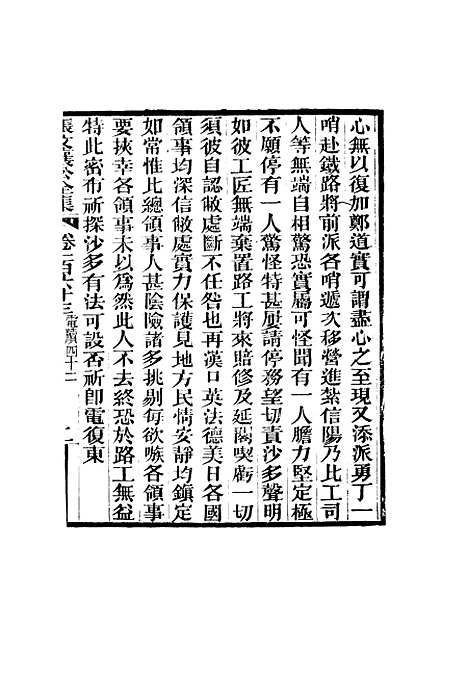 心無以復加鄭道實可謂盡心之至現又添派勇丁一
哨赴鐵路將前派各哨遞次移營進紮信陽乃比工司
人等無端自相驚恐實屬可怪聞有一人膽力堅定極
不願停有一人驚怪特甚屢請停務望切責沙多聲明
如彼工匠無端棄置路工將來賠修及延閣喫虧一切
須彼自認敝處斷不任咎也再漢口英法德美日各國
領事均深信敝處實力保護見地方民情安靜均鎮定
如常惟比總領事人甚陰險諸多挑剔每欲嗾各領事
要挾幸各領事未以為然此人不去終恐於路工無益
特此密布祈探沙多有法可設否祈卽電復東
張文襄公全集 卷一百六十三 電牘四十二